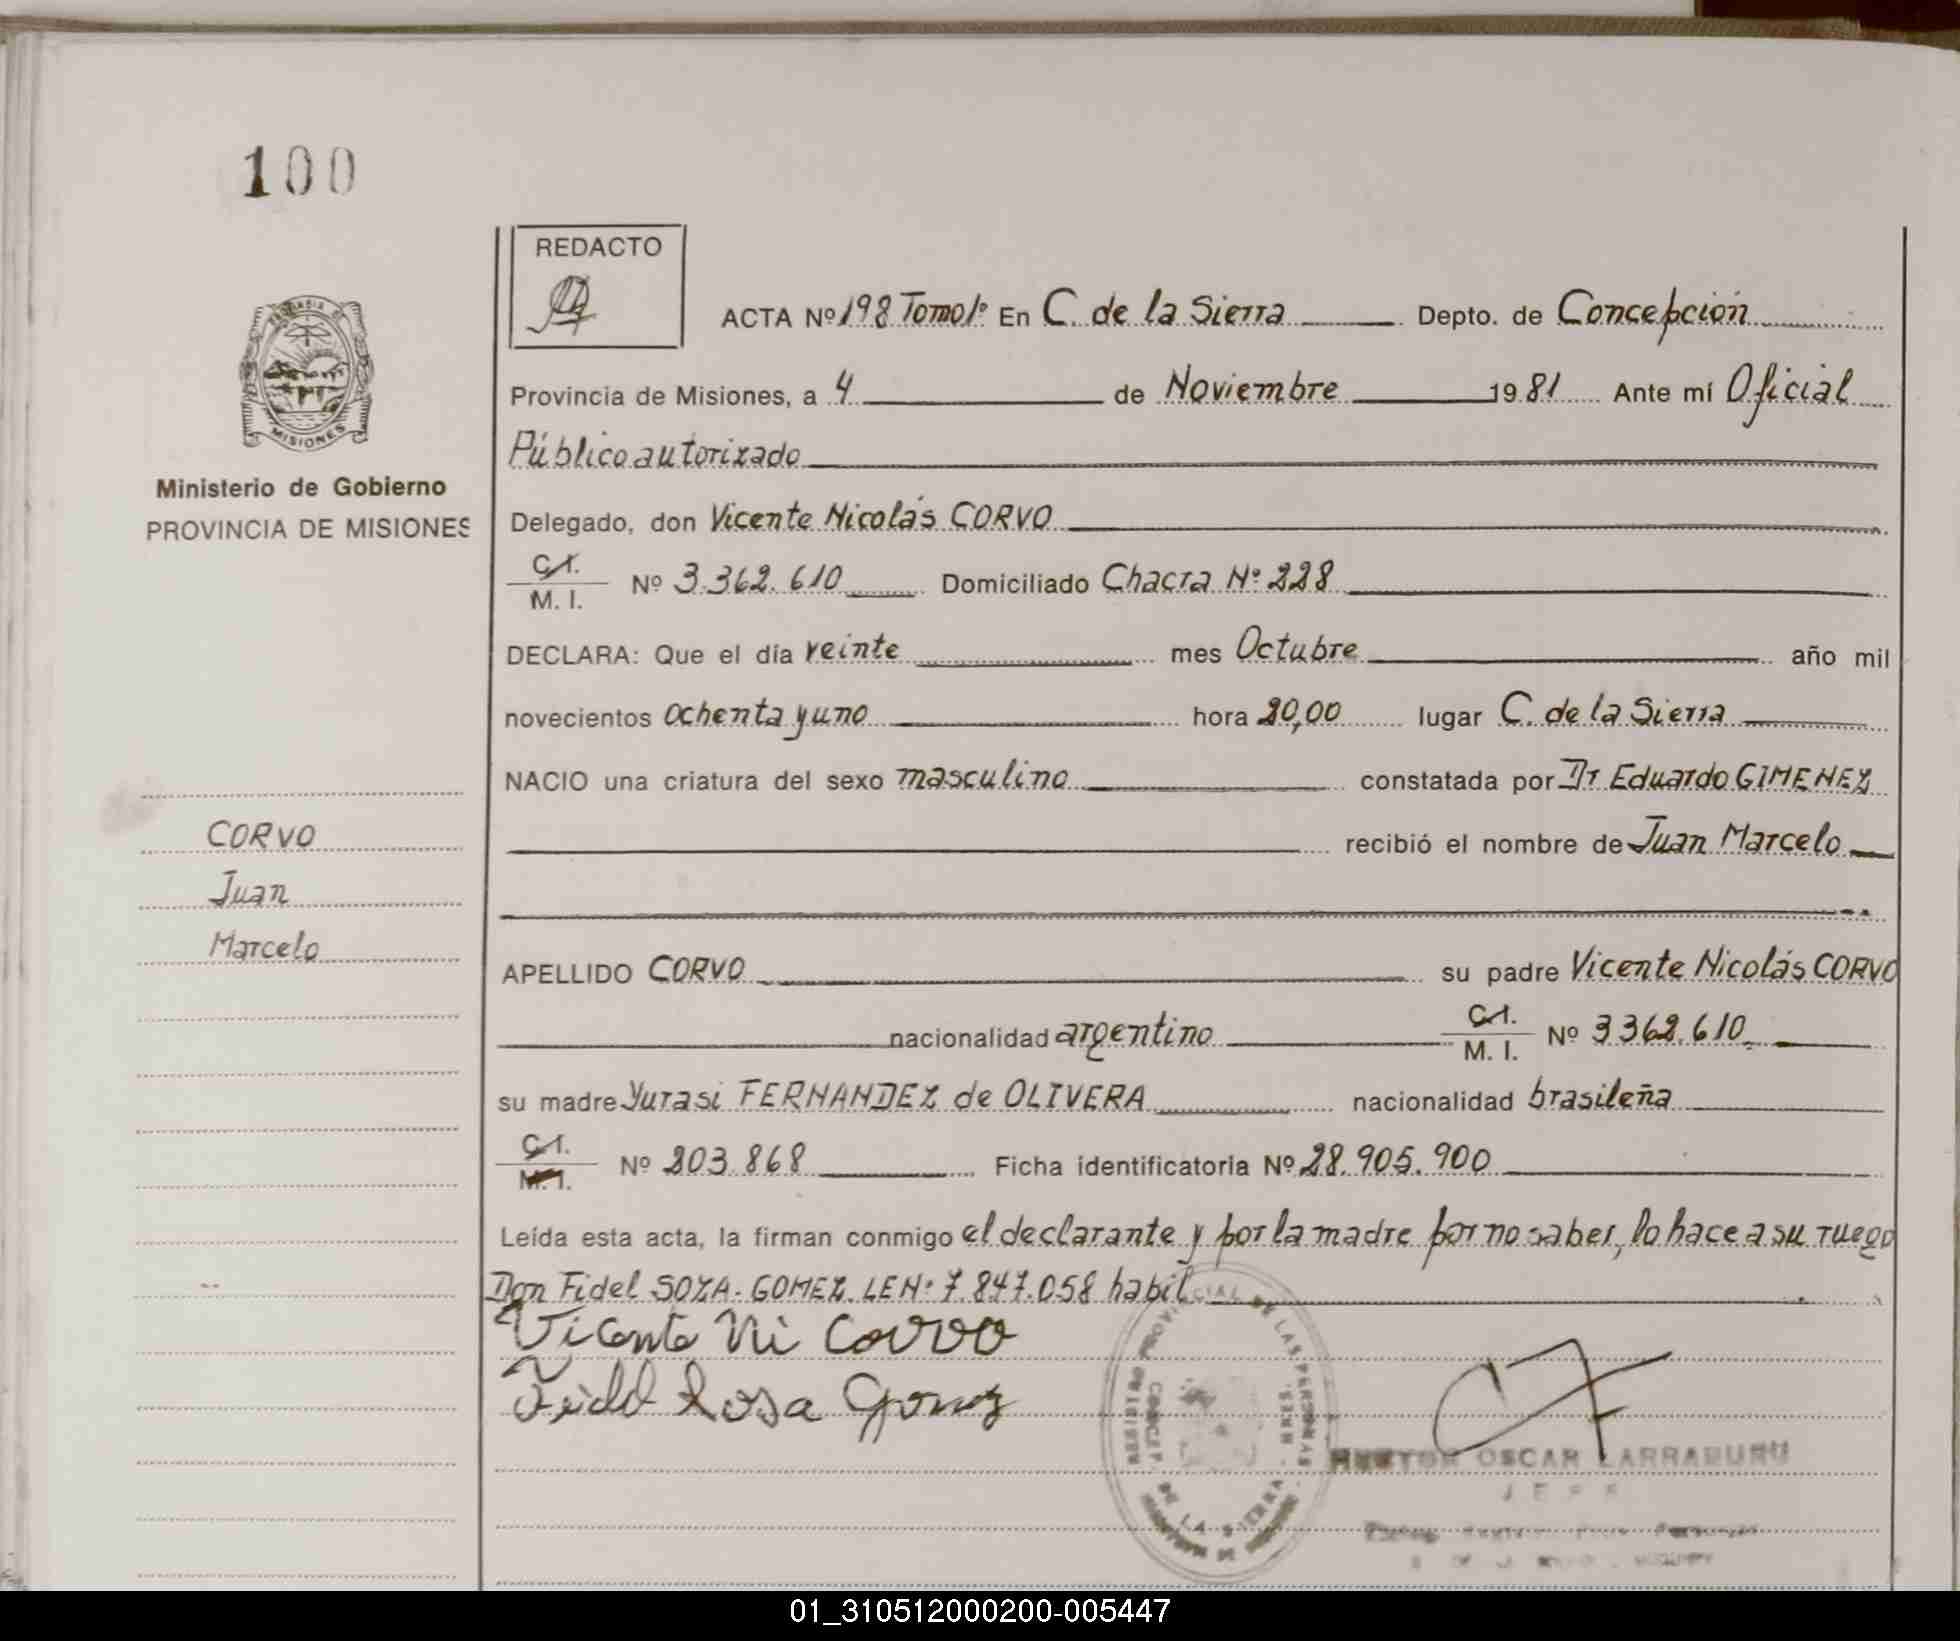 100
REDACTO
ACTA Nº 198 Tomo 1º En C. de la Sierra Depto. de Concepción
Provincia de Misiones, a 4 de Noviembre 1981 Ante mí Oficial
Público autorizado
Ministerio de Gobierno
PROVINCIA DE MISIONES
Delegado, don Vicente Nicolás CORVO
C.I.
M. I. Nº 3.362.610 Domiciliado Chacra Nº 228
DECLARA: Que el día veinte mes Octubre año mil
novecientos ochenta y uno hora 20,00 lugar C. de la Sierra
NACIO una criatura del sexo masculino constatada por Dr Eduardo GIMENEZ
recibió el nombre de Juan Marcelo
CORVO
Juan
Marcelo
APELLIDO CORVO su padre Vicente Nicolás CORVO
nacionalidad argentino C.I.
M. I. Nº 3362.610
su madre Yurasi FERNANDEZ de OLIVERA nacionalidad brasileña
C.I.
M.I. Nº 203.868 Ficha identificatoria Nº 28.905.900
Leída esta acta, la firman conmigo el declarante y por la madre por no saber, lo hace a su ruego
Don Fidel SOZA-GOMEZ LE Nº 7.847.058 habil
Vicente Ni Corvo
Fidel Sosa Gomez
PROVINCIAL DE LAS PERSONAS
DE LA SIERRA
MISIONES
HECTOR OSCAR LARRABURU
JEFE
01_310512000200-005447